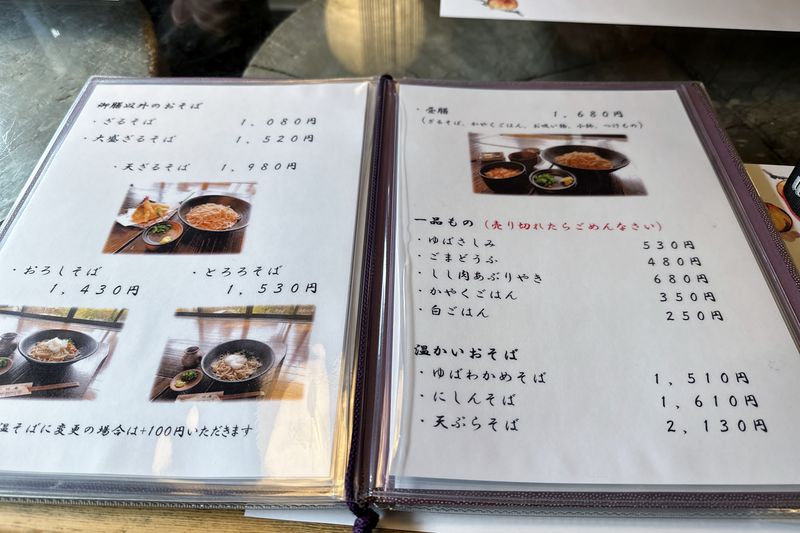 御膳以外のおそば
・ざるそば 1,080円
・大盛ざるそば 1,520円
・天ざるそば 1,980円
・おろしそば ・とろろそば
1,430円 1,530円
温そばに変更の場合は+100円いただきます
・昼膳 1,680円
(ざるそば、かやくごはん、お吸い物、小鉢、つけもの)
一品もの(売り切れたらごめんなさい)
・ゆばさしみ 530円
・ごまどうふ 480円
・しし肉あぶりやき 680円
・かやくごはん 350円
・白ごはん 250円
温かいおそば
・ゆばわかめそば 1,510円
・にしんそば 1,610円
・天ぷらそば 2,130円